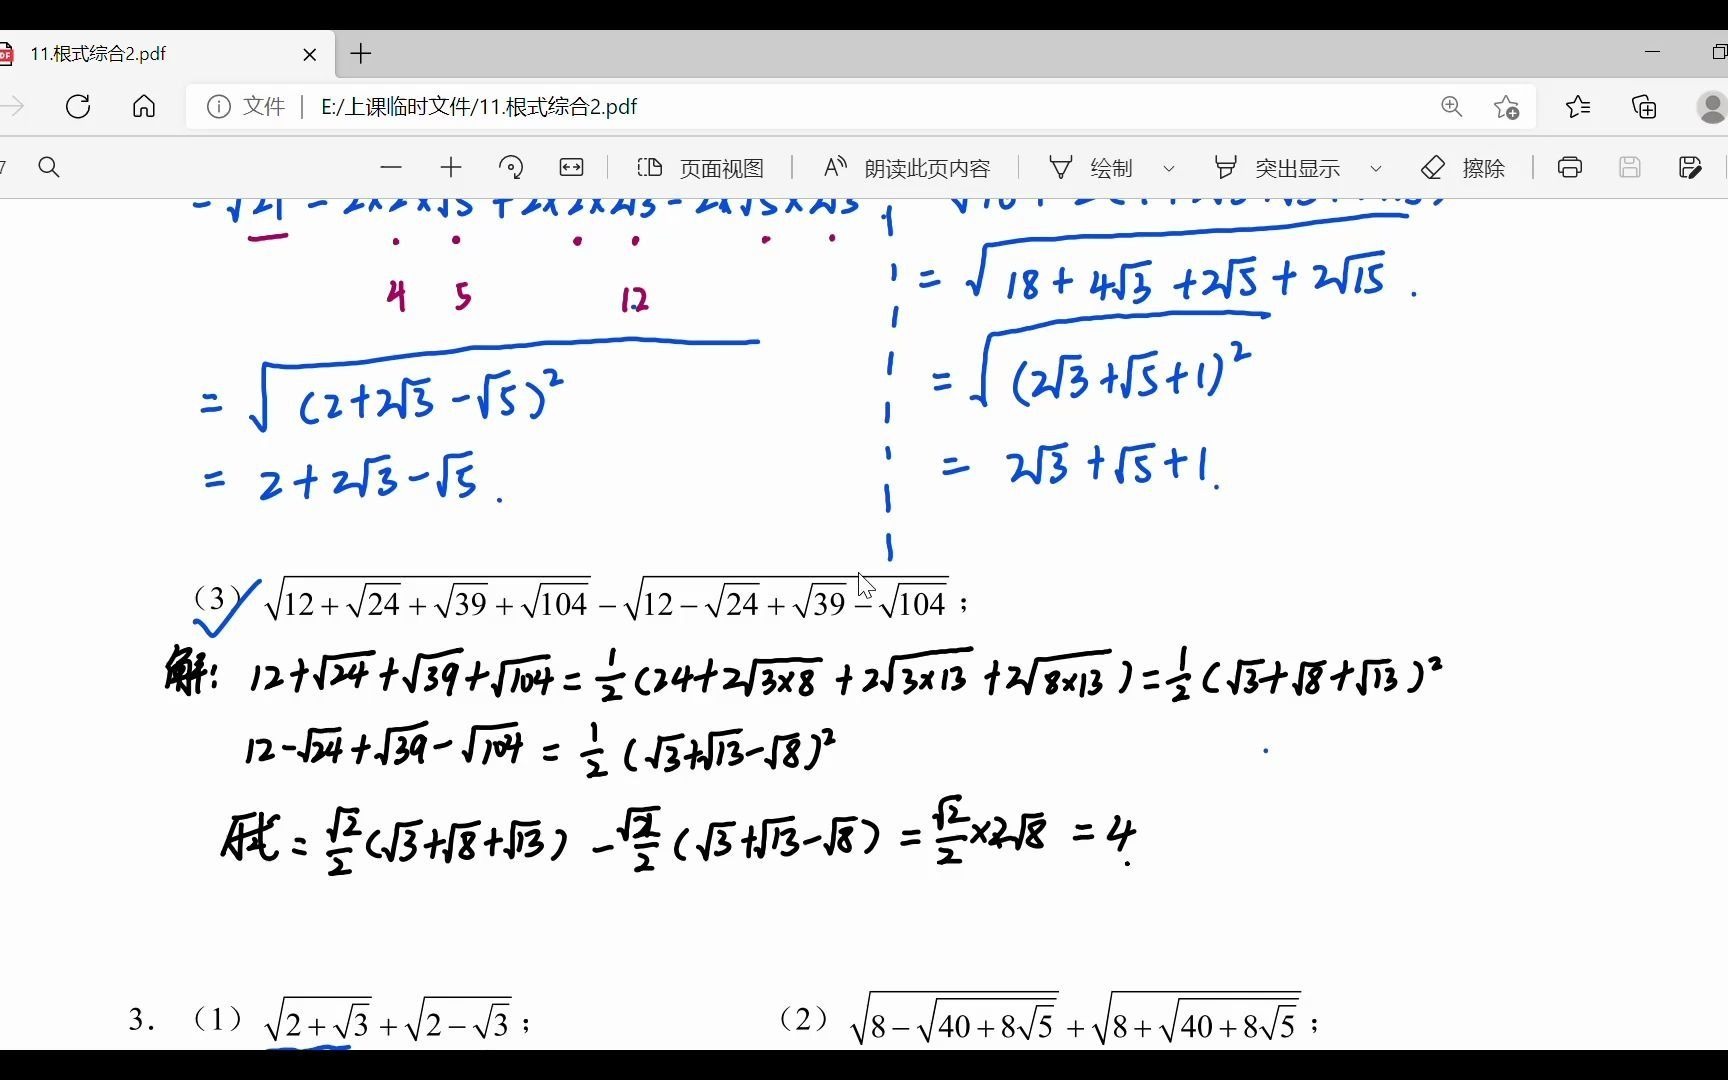 11.根式综合2.pdf
文件 | E:/上课临时文件/11.根式综合2.pdf
页面视图 朗读此页内容 绘制 突出显示 擦除
4 5 12
= √(18 + 4√3 + 2√5 + 2√15) .
= √((2+2√3-√5)²)
= √((2√3+√5+1)²)
= 2+2√3-√5 .
= 2√3+√5+1 .
（3） √(12+√24+√39+√104) − √(12−√24+√39−√104) ；
解: 12+√24+√39+√104 = 1/2 (24+2√(3×8)+2√(3×13)+2√(8×13)) = 1/2 (√3+√8+√13)²
12-√24+√39-√104 = 1/2 (√3+√13-√8)²
原式 = √2/2 (√3+√8+√13) - √2/2 (√3+√13-√8) = √2/2 ×2√8 = 4 .
3. （1） √(2+√3) + √(2−√3) ；
（2） √(8−√(40+8√5)) + √(8+√(40+8√5)) ；